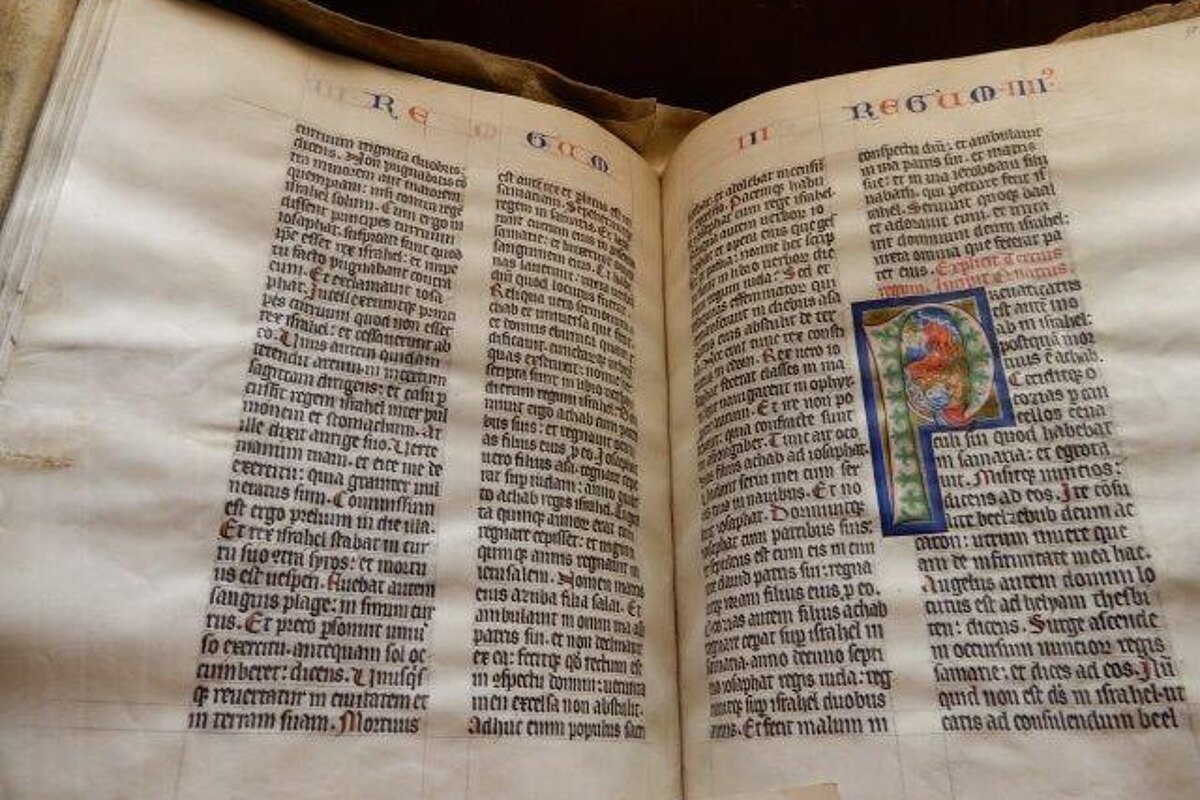 RE GUM
curruum triginta duobus:
dicens. Non pugnabitis cō
tra minorem aut maiorem
quempiam: nisi contra regē
israhel solum. Cum ergo vi
dissent principes curruum
iosaphat. suspicati sunt quod
ipse esset rex israhel: et impe
tu facto pugnabant contra
eum. Et exclamavit iosa
phat. Intellexeruntque princi
pes curruum quod non esset
rex israhel: et cessaverunt ab
eo. Unus autem quidam
tetendit arcum in incertum
sagittam dirigens: et casu p
cussit regem israhel inter pul
monem et stomachum. At
ille dixit aurige suo. Verte
manum tuam. et eice me de
exercitu: quia graviter vul
neratus sum. Commissum
est ergo prelium in die illa.
Et rex israhel stabat in cur
ru suo contra syros: et mortu
us est vespere. fluebat autem
sanguis plage: in sinum cur
rus. Et preco psonuit univ
so exercitu. antequam sol oc
cumberet: dicens. Unusqsq
q revertatur in civitatem et
in terram suam. Mortuus
est autem rex et platus est in
samariam. Sepelierunt
regem in samaria. Et lave
runt currum eius in piscina
samarie: et linxerunt
sanguinem eius. Et habe
nas laverunt: iuxta verbū
dn̄i quod locutus fuerat.
Reliqua vero sermonum
achab et universa que fecit
et domus eburnea quam e
dificavit. cunctarumque urbiū
quas exstruxit: nonne
scripta sunt in libro verborū
dierum regum israhel. Dor
mivit ergo achab cum patri
bus suis: et regnavit ochozi
as filius eius p eo. Iosaphat
vero filius asa. regnare cepe
rat sup iudam: anno quar
to achab regis israhel. Trigin
ta quinque annorum erat cum
regnare cepisset: et viginti
quinque annis regnavit in
ierusalem. Nomen matris
eius azuba filia salai. Et
ambulavit in omni via asa
patris sui. et non declinavit
ex ea: fecitque qd rectum est
in conspectu domini: verūta
men excelsa non abstulit.
Adhuc enim populus sacri
III
bat. et adolebat incensū
in excelsis. Pacemque habu
it iosaphat cum rege israhel.
Reliqua autem verborum io
saphat et opera eius que ges
sit et prelia: nonne hec scrip
ta sunt in libro verborū die
rum regum iuda. Sed et
reliquias effeminatorum qui
remanserant in diebus asa
patris eius abstulit de ter
ra. Nec erat tunc rex consti
tutus in edom. Rex vero io
saphat fecerat classes in ma
ri que navigarent in ophyr
propter aurum. Et ire non po
tuerunt: quia confracte sunt
in asiongaber. Tunc ait oco
zias filius achab ad iosaphat.
Vadant servi mei cum ser
vis tuis in navibus. Et no
luit iosaphat. Dormivitque
iosaphat cum patribus suis:
et sepultus est cum eis in civi
tate david patris sui: regna
vitque ioram filius eius p eo.
Ocozias autem filius achab
regnare cepat sup israhel in
samaria. anno decimo septi
mo iosaphat regis iuda: reg
navitque sup israhel duobus
annis. Et fecit malum in
REGUM IIII⁹
conspectu dn̄i: et ambulavit
in via patris sui. et matris
sue: et in via ieroboam filii
nabath. qui peccare fecit is
rahel. Servivit quoque baal
et adoravit eum. et irrita
vit dominum deum israhel:
iuxta omnia que fecerat pa
ter eius. Explicit Tercius
regum. Incipit Quartus.
Prevaricatus
est autē mo
ab in israhel:
postquā mor
tuus ē achab.
Ceciditque o
cozias p can
cellos cena
culi sui quod habebat
in samaria: et egrota
vit. Misitque nuncios:
dicens ad eos. Ite cōsu
lite beelzebub deum ac
caron: utrum vivere que
am de infirmitate mea hac.
Angelus autem domini lo
cutus est ad helyam thesbi
ten: dicens. Surge ascende
in occursum nunciorum regis
samarie: et dices ad eos. Nū
quid non est ds̄ in israhel. ut
eatis ad consulendum beel